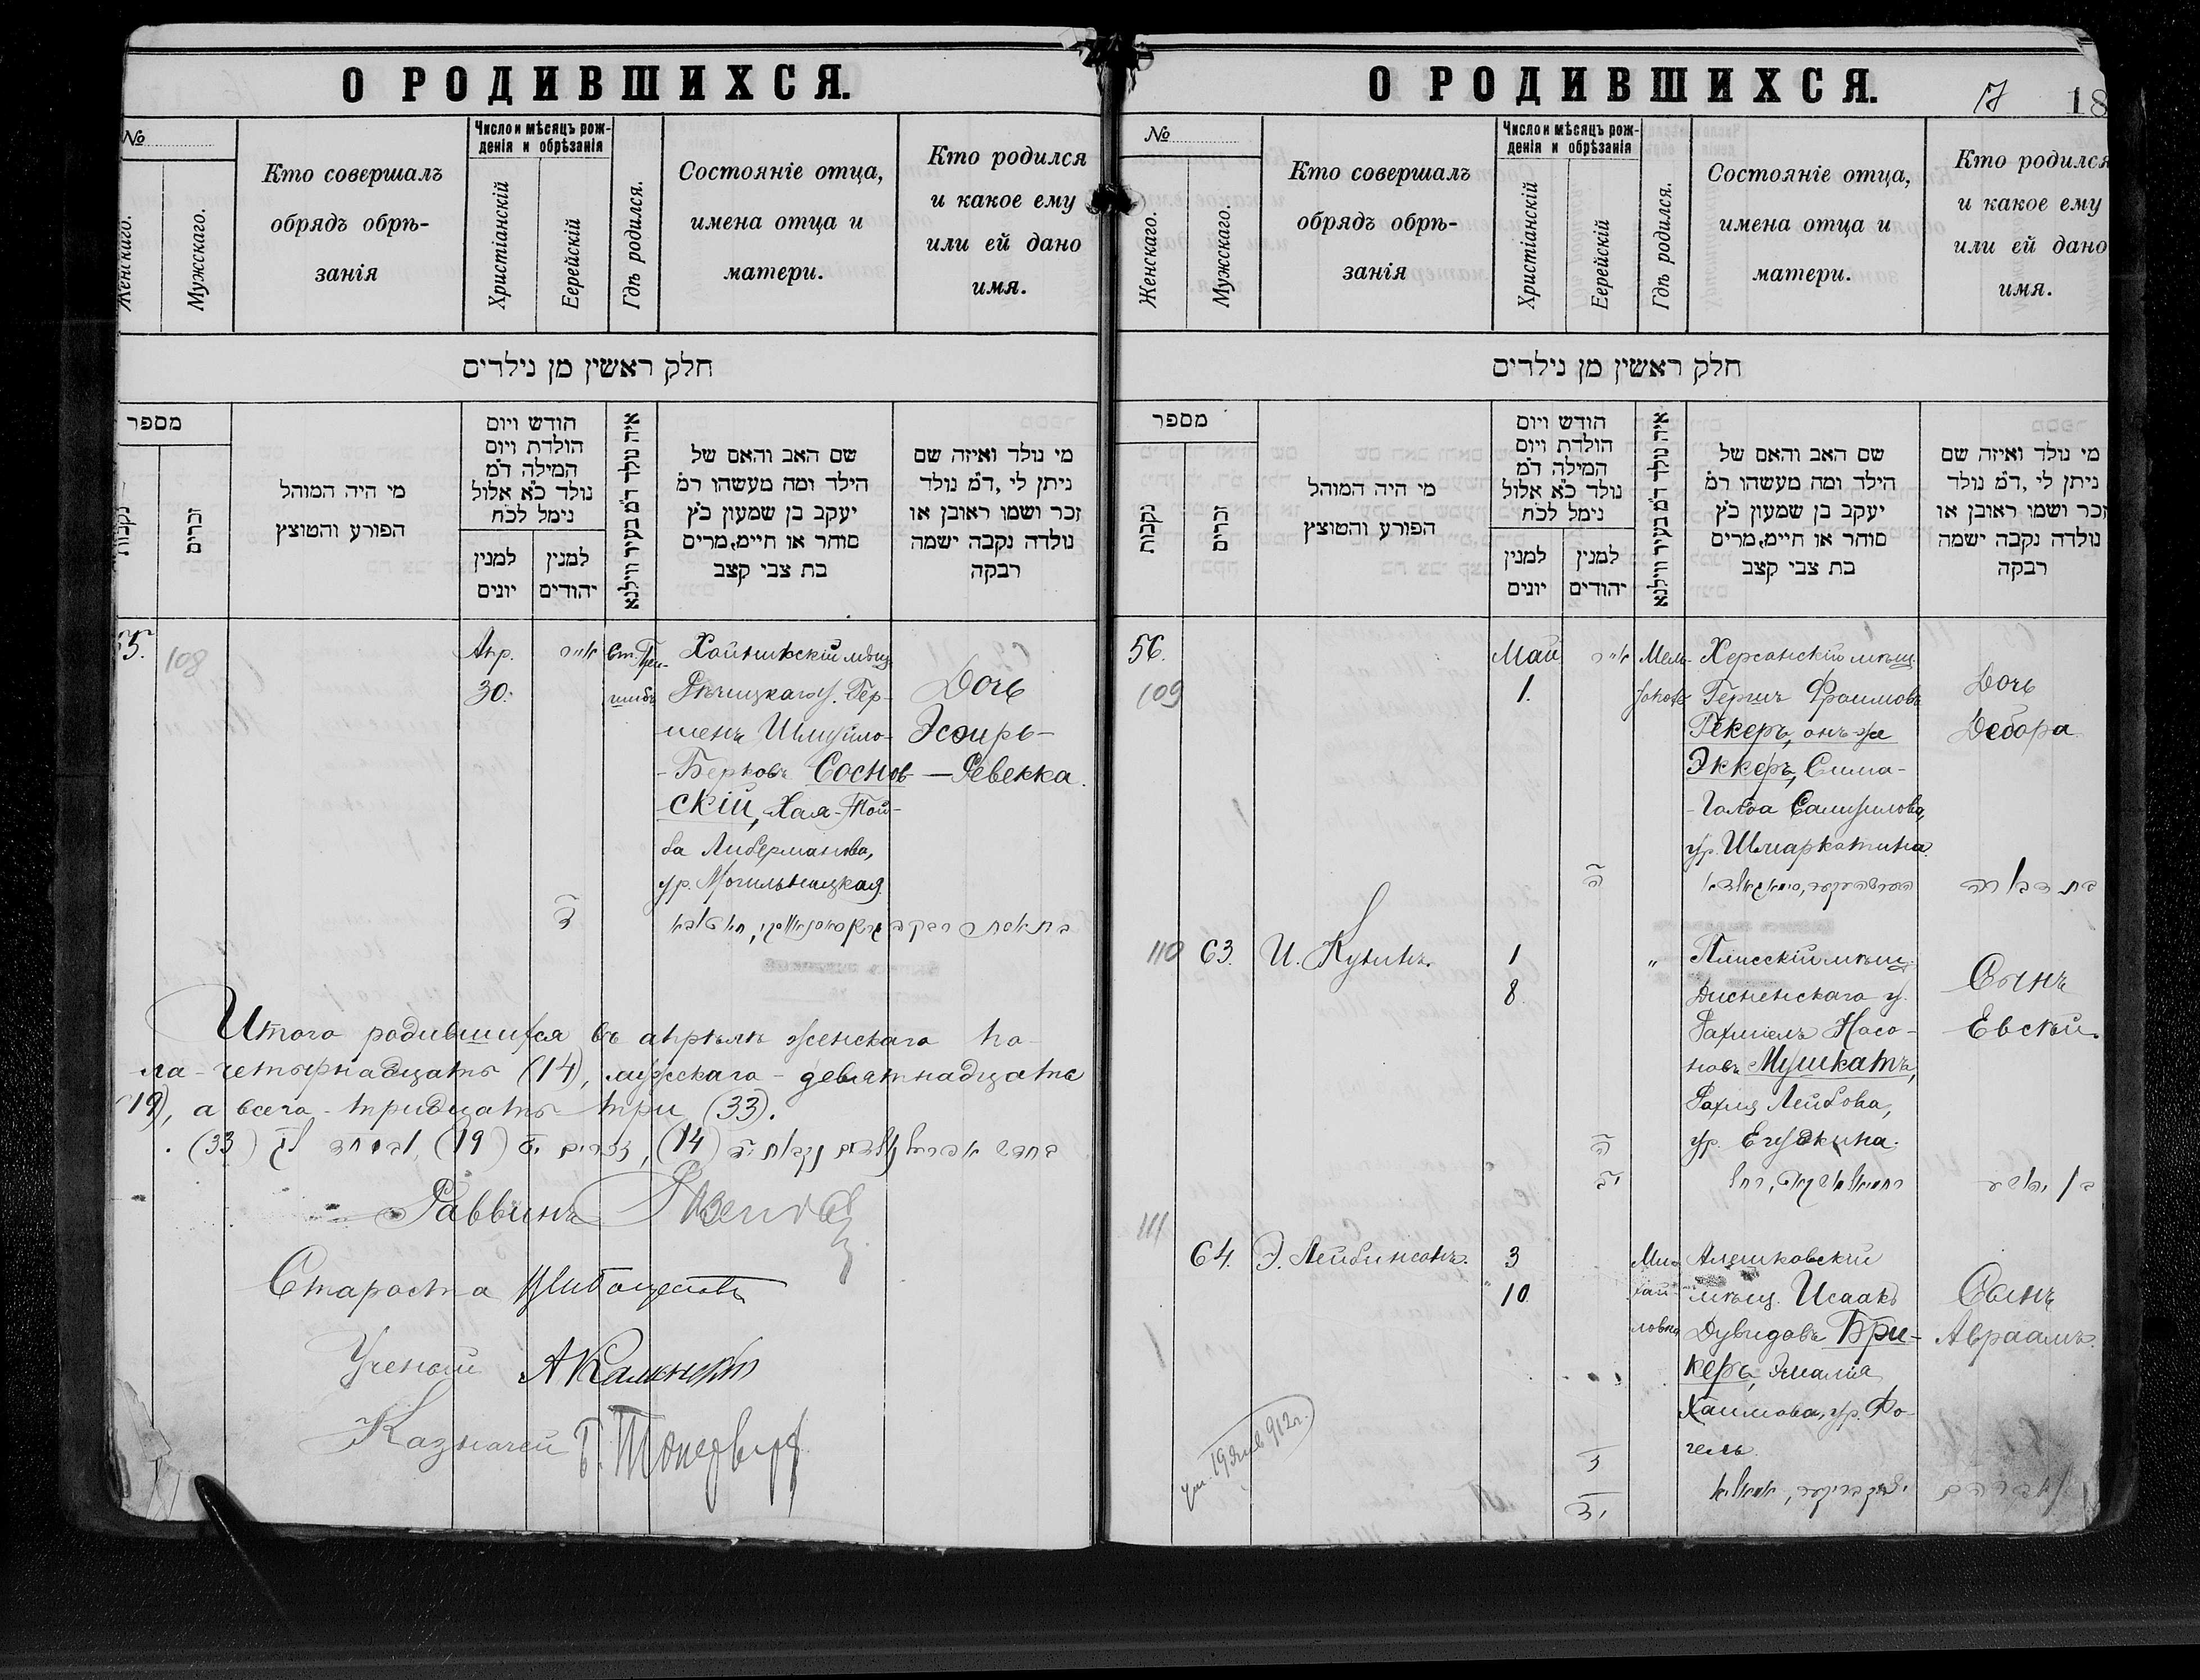 О РОДИВШИХСЯ.
№
Женскаго.
Мужскаго.
Кто совершалъ
обрядъ обрѣ-
занія
Число и мѣсяцъ рож-
денія и обрѣзанія
Христіанскій
Еерейскій
Гдѣ родился.
Состояніе отца,
имена отца и
матери.
Кто родился
и какое ему
или ей дано
имя.
חלק ראשין מן נילדים
מספר
נקבות
זכרים
מי היה המוהל
הפורע והטוצץ
הודש ויום
הולדת ויום
המילה ד״מ
נולד כ״א אלול
נימל לכ״ח
למנין
יונים
למנין
יהודים
איה נולד ד״מ בעיר ווילנא
שם האב והאם של
הילד ומה מעשהו ד״מ
יעקב בן שמעון כ״ץ
סוחר או חיימ, מרים
בת צבי קצב
מי נולד ואיזה שם
ניתן לי, ד״מ נולד
זכר ושמו ראובן או
נולדה נקבה ישמה
רבקה
55.
108
Апр.
30.
אייר
ד
Хойникскій мѣщ.
Рѣчицкаго у. Гер-
шенъ Шмуйло-
-Берковъ Соснов-
скій, Хая-Той-
ба Либерманова,
ур. Могильницкая.
Дочь
Эсѳирь-
-Ревекка.
Итого родившихся въ апрѣлѣ женскаго по-
ла - четырнадцать (14), мужскаго - девятнадцать
19), а всего - тридцать три (33).
Раввинъ
Староста
Ученый
Казначей
О РОДИВШИХСЯ.
17
18
№
Женскаго.
Мужскаго.
Кто совершалъ
обрядъ обрѣ-
занія
Число и мѣсяцъ рож-
денія и обрѣзанія
Христіанскій
Еерейскій
Гдѣ родился.
Состояніе отца,
имена отца и
матери.
Кто родился
и какое ему
или ей дано
имя.
חלק ראשין מן נילדים
מספר
נקבות
זכרים
מי היה המוהל
הפורע והטוצץ
הודש ויום
הולדת ויום
המילה ד״מ
נולד כ״א אלול
נימל לכ״ח
למנין
יונים
למנין
יהודים
איה נולד ד״מ בעיר ווילנא
שם האב והאם של
הילד ומה מעשהו ד״מ
יעקב בן שמעון כ״ץ
סוחר או חיימ, מרים
בת צבי קצב
מי נולד ואיזה שם
ניתן לי, ד״מ נולד
זכר ושמו ראובן או
נולדה נקבה ישמה
רבקה
56.
109
Май
1.
אייר
ה
Херсонскій мѣщ.
Гершъ Фроимовъ
Рекеръ, онъ-же
Эккеръ, Сима-
-Голда Самуилова,
ур. Шмаркатина.
Дочь
Дебора
בת דבורה
110
63.
И. Кунинъ.
1
8.
"
ה
יב
Плисскій мѣщ.
Дисненскаго у.
Рахміель Насо-
новъ Мушкатъ,
Рахля Лейбова,
ур. Егудкина.
Сынъ
Евсѣй.
111
64.
Э. Лейбинсонъ.
3
10
Ми-
хай-
ловка
ז
יד
Алешковскій
мѣщ. Исаакъ
Дувидовъ Бри-
керъ, Эмалія
Хаимова, ур. Фо-
гель.
Сынъ
Авраамъ.
יצחק בריקער,
אברהם